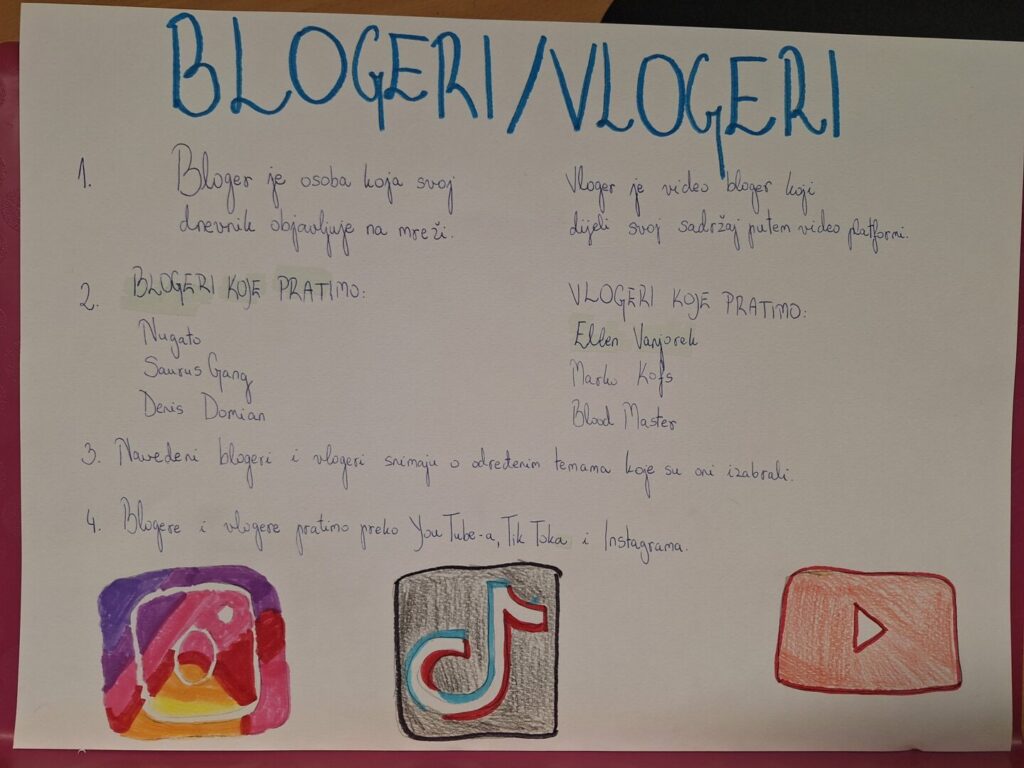 BLOGERI/VLOGERI
1. Bloger je osoba koja svoj
dnevnik objavljuje na mreži.
Vloger je video bloger koji
dijeli svoj sadržaj putem video platformi.
2. BLOGERI KOJE PRATIMO:
Nugato
Saurus Gang
Denis Domian
VLOGERI KOJE PRATIMO:
Ellen Vanjorek
Marko Kofs
Blood Master
3. Navedeni blogeri i vlogeri snimaju o određenim temama koje su oni izabrali.
4. Blogere i vlogere pratimo preko YouTube-a, Tik Toka i Instagrama.